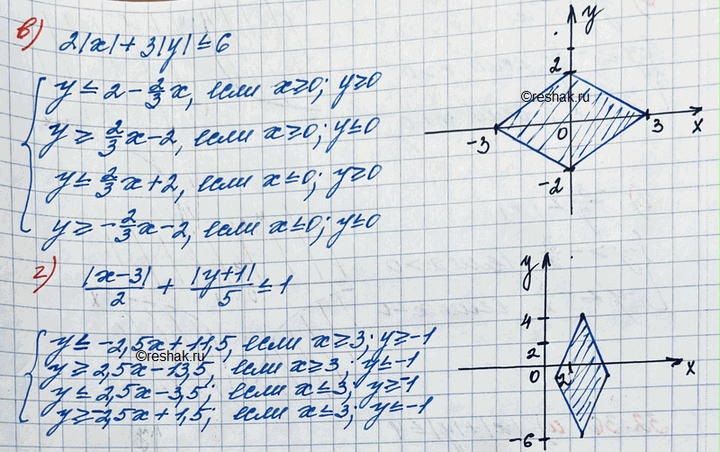 в) 2|x| + 3|y| ≤ 6
y ≤ 2 - 2/3 x, если x ≥ 0; y ≥ 0
y ≥ 2/3 x - 2, если x ≥ 0; y ≤ 0
y ≤ 2/3 x + 2, если x ≤ 0; y ≥ 0
y ≥ - 2/3 x - 2, если x ≤ 0; y ≤ 0
y
2
©reshak.ru
-3
0
3
x
-2
г) |x-3|/2 + |y+1|/5 ≤ 1
y ≤ -2,5x + 11,5, если x ≥ 3; y ≥ -1
©reshak.ru
y ≥ 2,5x - 13,5, если x ≥ 3, y ≤ -1
y ≤ 2,5x - 3,5, если x ≤ 3, y ≥ -1
y ≥ -2,5x + 1,5; если x ≤ 3; y ≤ -1
y
4
2
0
2
x
-6